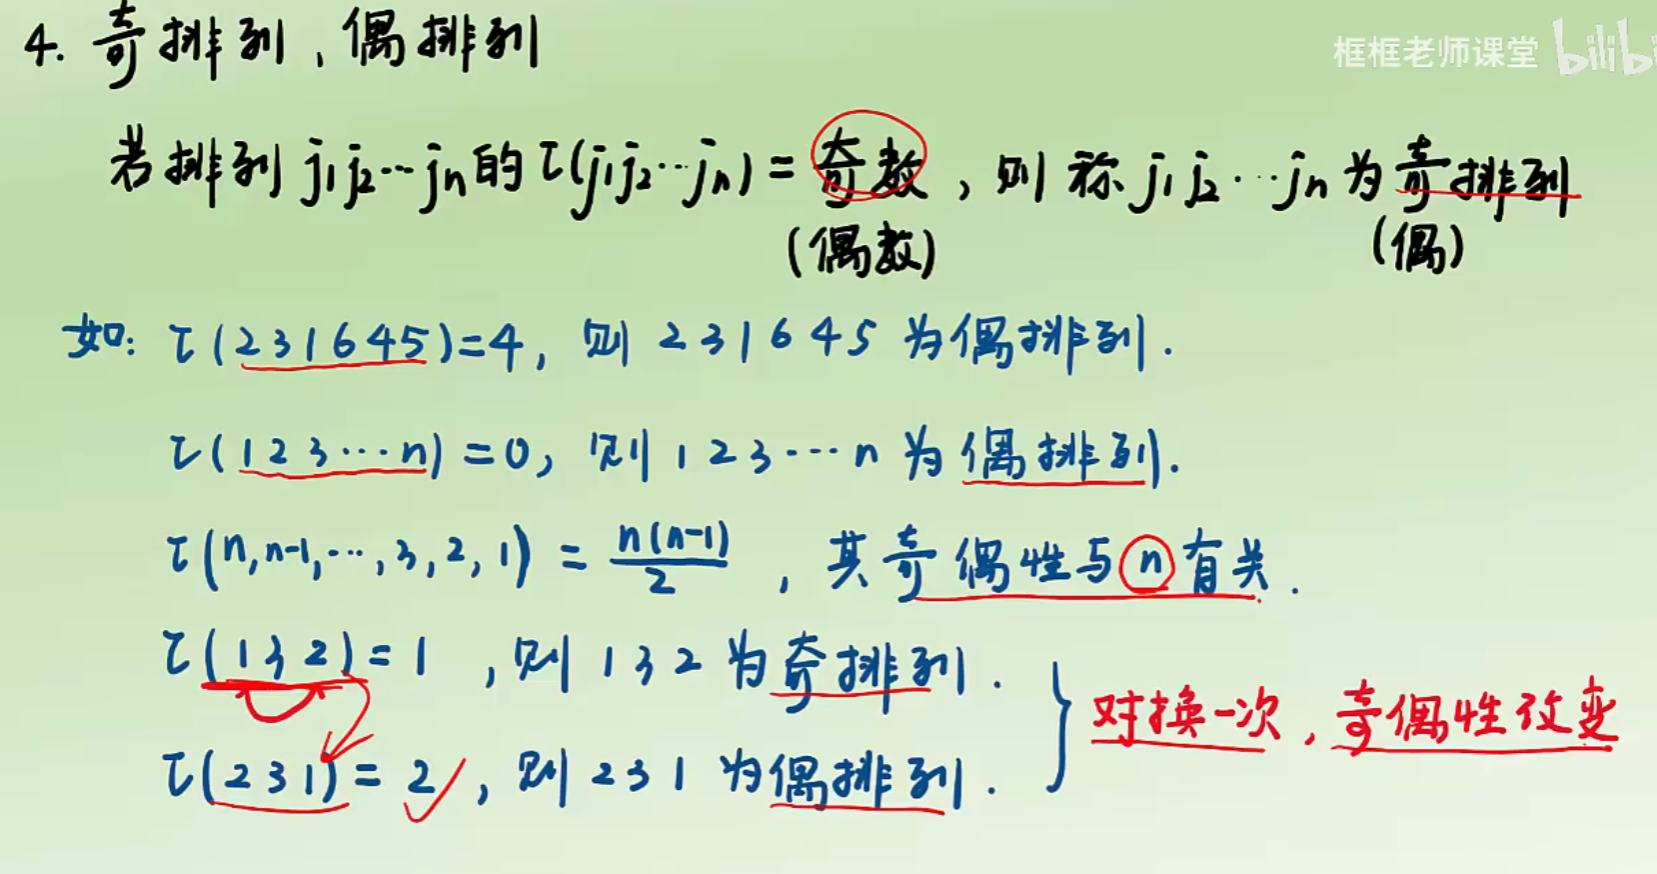 4. 奇排列，偶排列
框框老师课堂 bilibi
若排列 j₁j₂…jₙ的 τ(j₁j₂…jₙ) = 奇数，则称 j₁j₂…jₙ 为奇排列
(偶数) (偶)
如: τ(231645)=4, 则 231645 为偶排列.
τ(123…n) = 0, 则 123…n 为偶排列.
τ(n,n-1,…,3,2,1) = n(n-1)/2 , 其奇偶性与n有关.
τ(132)=1 , 则 132 为奇排列.
对换一次，奇偶性改变
τ(231)= 2, 则 231 为偶排列.